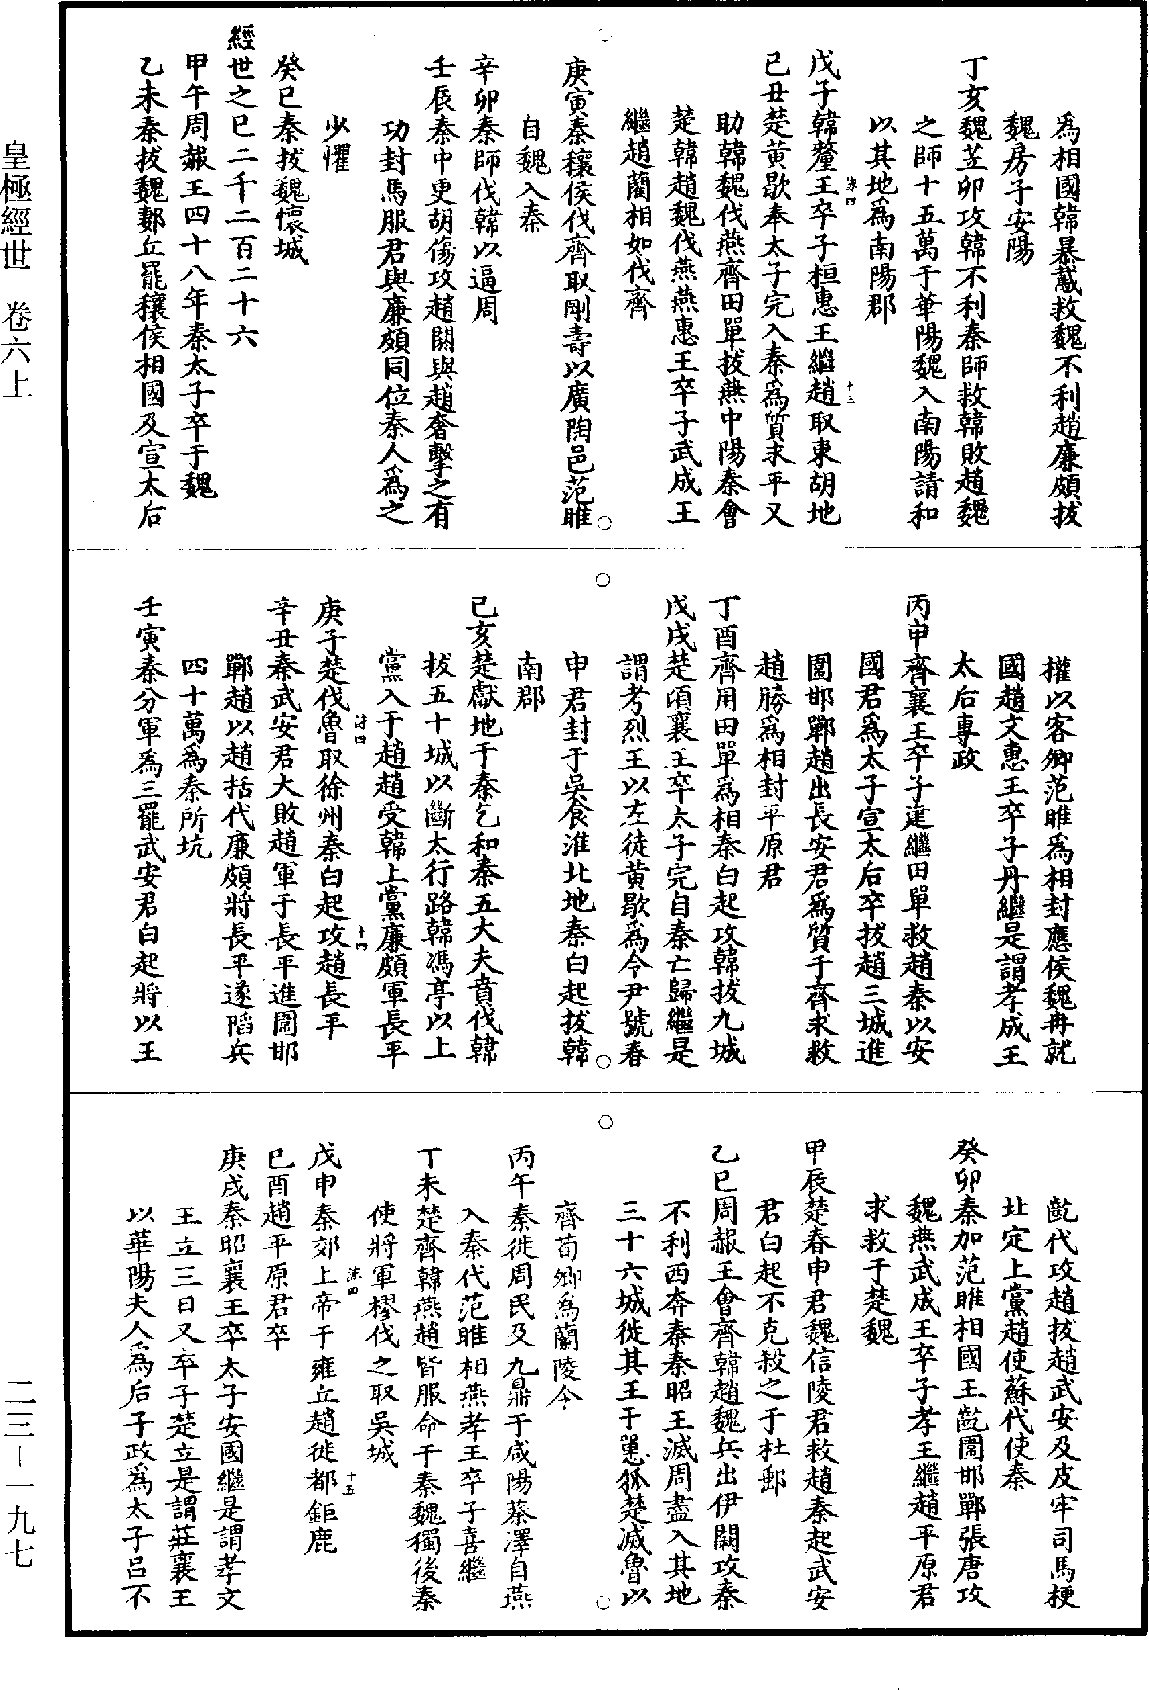 爲相國韓暴鳶救魏不利趙廉頗拔
魏房子安陽
丁亥魏芒卯攻韓不利秦師救韓敗趙魏
之師十五萬于華陽魏入南陽請和
以其地爲南陽郡
戊子韓釐王卒子桓惠王繼趙取東胡地
己丑楚黃歇奉太子完入秦爲質求平又
助韓魏伐燕齊田單拔燕中陽秦會
楚韓趙魏伐燕燕惠王卒子武成王
繼趙藺相如伐齊
庚寅秦穰侯伐齊取剛壽以廣陶邑范睢
自魏入秦
辛卯秦師伐韓以逼周
壬辰秦中更胡傷攻趙閼與趙奢擊之有
功封馬服君與廉頗同位秦人爲之
少懼
癸巳秦拔魏懷城
經世之巳二千二百二十六
甲午周赧王四十八年秦太子卒于魏
乙未秦拔魏鄭丘罷穰侯相國及宣太后
權以客卿范睢爲相封應侯魏冉就
國趙文惠王卒子丹繼是謂孝成王
太后專政
丙申齊襄王卒子建繼田單救趙秦以安
國君爲太子宣太后卒拔趙三城進
圍邯鄲趙出長安君爲質于齊求救
趙勝爲相封平原君
丁酉齊用田單爲相秦白起攻韓拔九城
戊戌楚頃襄王卒太子完自秦亡歸繼是
謂考烈王以左徒黃歇爲令尹號春
申君封于吳食淮北地秦白起拔韓
南郡
己亥楚獻地于秦乞和秦五大夫賁伐韓
拔五十城以斷太行路韓馮亭以上
黨入于趙趙受韓上黨廉頗軍長平
庚子楚伐魯取徐州秦白起攻趙長平
辛丑秦武安君大敗趙軍于長平進圍邯
鄲趙以趙括代廉頗將長平遂陷兵
四十萬爲秦所坑
壬寅秦分軍爲三罷武安君白起將以王
齕代攻趙拔趙武安及皮牢司馬梗
北定上黨趙使蘇代使秦
癸卯秦加范睢相國王齕圍邯鄲張唐攻
魏燕武成王卒子孝王繼趙平原君
求救于楚魏
甲辰楚春申君魏信陵君救趙秦起武安
君白起不克殺之于杜郵
乙巳周赧王會齊韓趙魏兵出伊闕攻秦
不利西奔秦秦昭王滅周盡入其地
三十六城徙其王于𢠸狐楚滅魯以
齊荀卿爲蘭陵令
丙午秦徙周民及九鼎于咸陽蔡澤自燕
入秦代范睢相燕孝王卒子喜繼
丁未楚齊韓燕趙皆服命于秦魏獨後秦
使將軍樛伐之取吳城
戊申秦郊上帝于雍丘趙徙都鉅鹿
己酉趙平原君卒
庚戌秦昭襄王卒太子安國繼是謂孝文
王立三日又卒子楚立是謂莊襄王
以華陽夫人爲后子政爲太子呂不
皇極經世 卷六上
二三－一九七